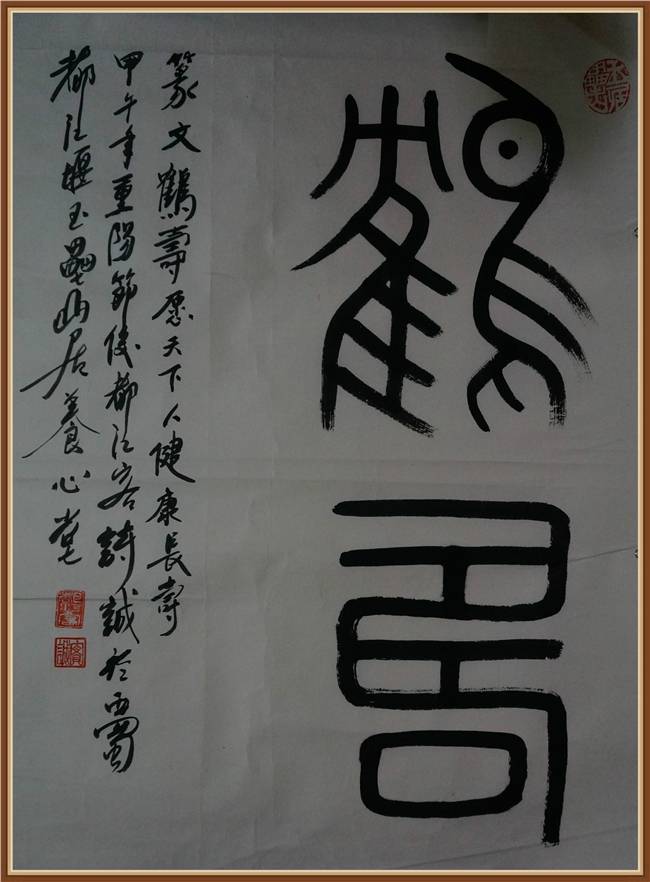 鶴壽
篆文鶴壽愿天下人健康長壽
甲午年重陽節後都江客詩誠於西蜀
都江堰玉壘山居養心堂